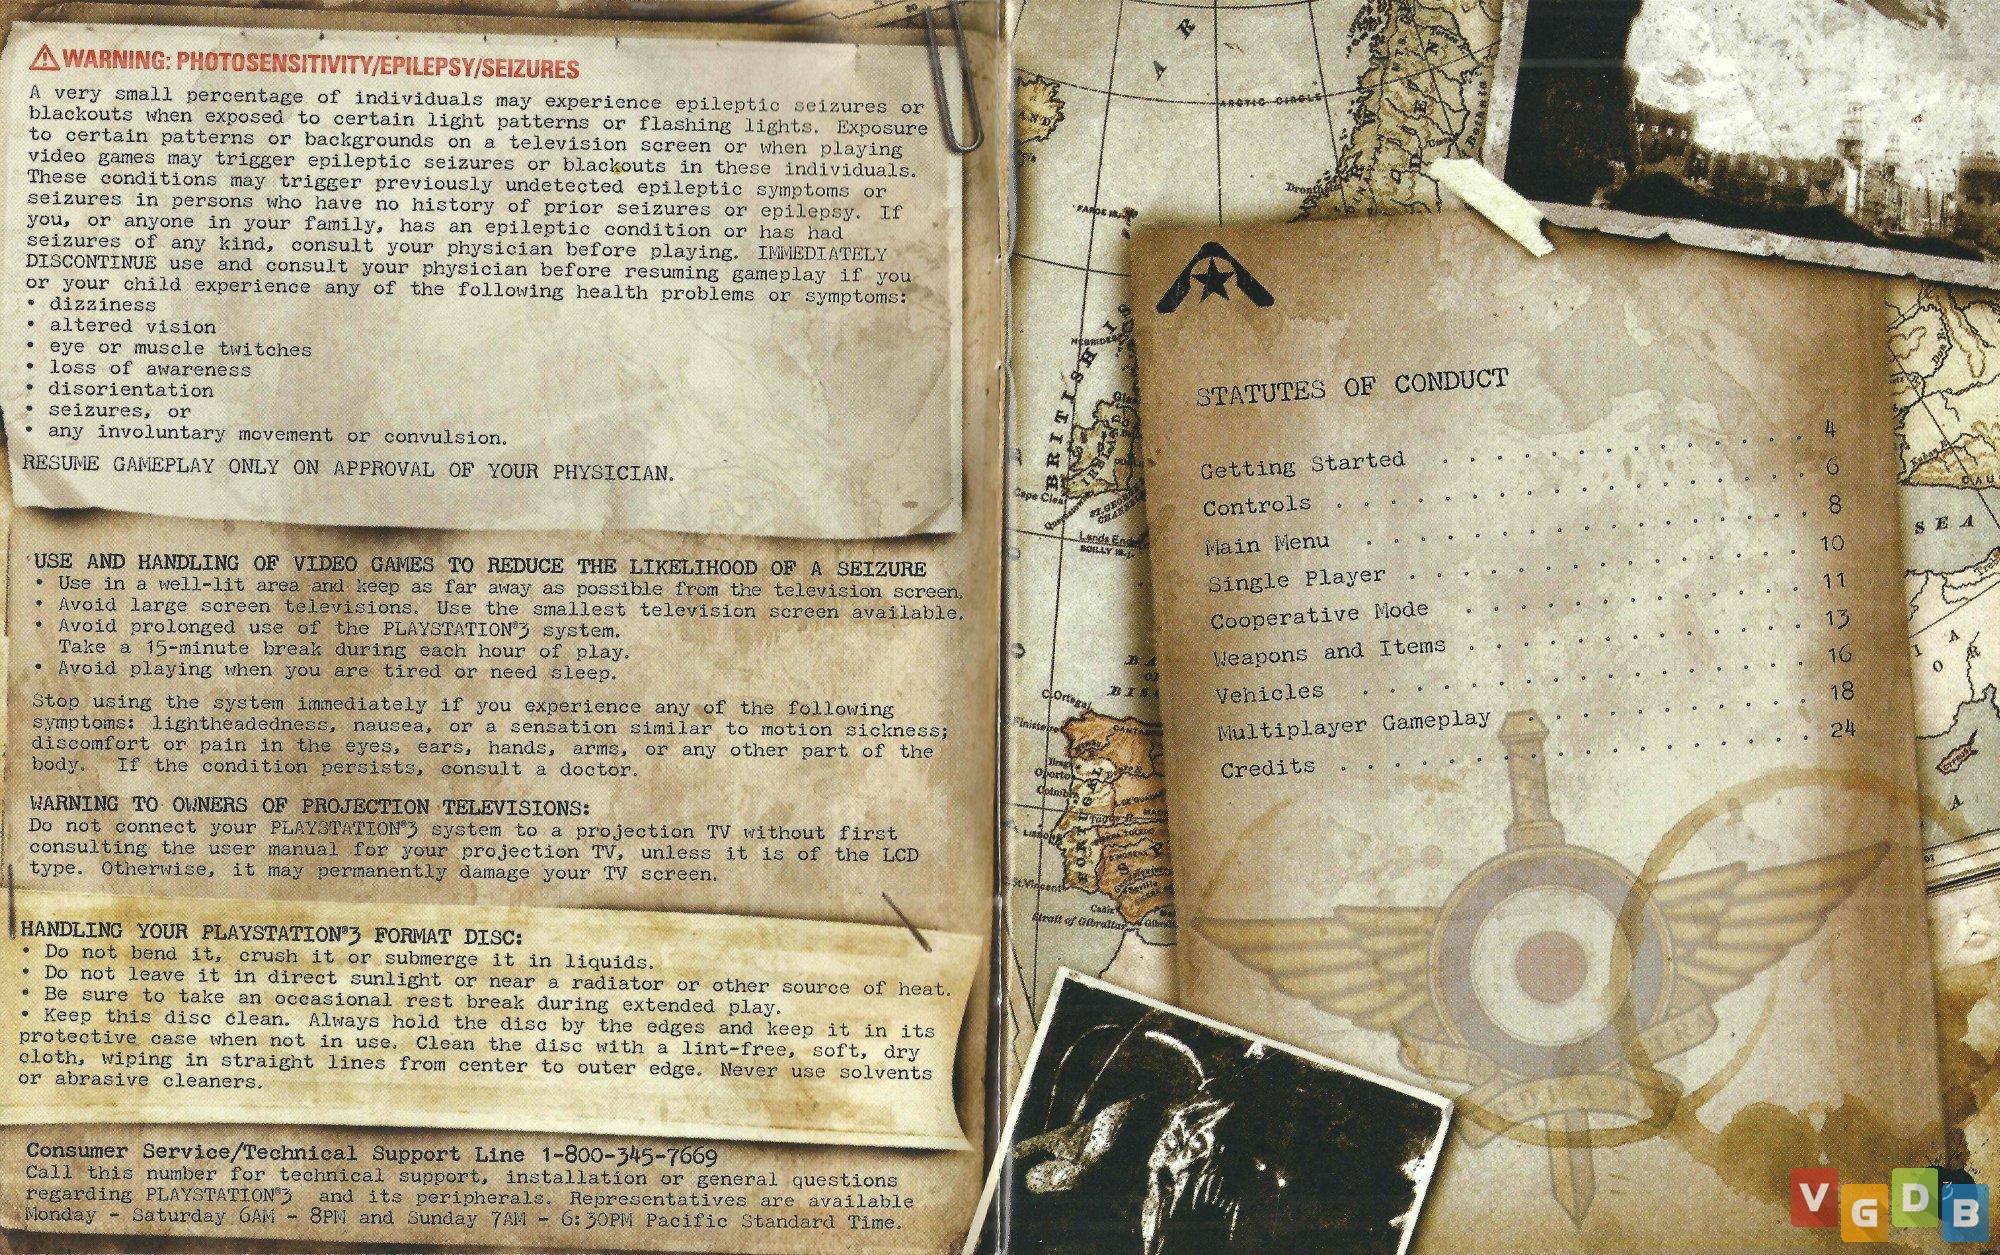 WARNING: PHOTOSENSITIVITY/EPILEPSY/SEIZURES
A very small percentage of individuals may experience epileptic seizures or
blackouts when exposed to certain light patterns or flashing lights. Exposure
to certain patterns or backgrounds on a television screen or when playing
video games may trigger epileptic seizures or blackouts in these individuals.
These conditions may trigger previously undetected epileptic symptoms or
seizures in persons who have no history of prior seizures or epilepsy. If
you, or anyone in your family, has an epileptic condition or has had
seizures of any kind, consult your physician before playing. IMMEDIATELY
DISCONTINUE use and consult your physician before resuming gameplay if you
or your child experience any of the following health problems or symptoms:
• dizziness
• altered vision
• eye or muscle twitches
• loss of awareness
• disorientation
• seizures, or
• any involuntary movement or convulsion.
RESUME GAMEPLAY ONLY ON APPROVAL OF YOUR PHYSICIAN.
USE AND HANDLING OF VIDEO GAMES TO REDUCE THE LIKELIHOOD OF A SEIZURE
• Use in a well-lit area and keep as far away as possible from the television screen.
• Avoid large screen televisions. Use the smallest television screen available.
• Avoid prolonged use of the PLAYSTATION®3 system.
Take a 15-minute break during each hour of play.
• Avoid playing when you are tired or need sleep.
Stop using the system immediately if you experience any of the following
symptoms: lightheadedness, nausea, or a sensation similar to motion sickness;
discomfort or pain in the eyes, ears, hands, arms, or any other part of the
body. If the condition persists, consult a doctor.
WARNING TO OWNERS OF PROJECTION TELEVISIONS:
Do not connect your PLAYSTATION®3 system to a projection TV without first
consulting the user manual for your projection TV, unless it is of the LCD
type. Otherwise, it may permanently damage your TV screen.
HANDLING YOUR PLAYSTATION®3 FORMAT DISC:
• Do not bend it, crush it or submerge it in liquids.
• Do not leave it in direct sunlight or near a radiator or other source of heat.
• Be sure to take an occasional rest break during extended play.
• Keep this disc clean. Always hold the disc by the edges and keep it in its
protective case when not in use. Clean the disc with a lint-free, soft, dry
cloth, wiping in straight lines from center to outer edge. Never use solvents
or abrasive cleaners.
Consumer Service/Technical Support Line 1-800-345-7669
Call this number for technical support, installation or general questions
regarding PLAYSTATION®3 and its peripherals. Representatives are available
Monday - Saturday 6AM - 8PM and Sunday 7AM - 6:30PM Pacific Standard Time.
ARCTIC CIRCLE
FAROE IS.
HEBRIDES
BRITISH
Cape Clear
ST. GEORGE
CHANNEL
Lands End
SCILLY IS.
C. Ortegal
Finisterre
Oporto
Coimbra
St. Vincent
Cadiz
Strait of Gibraltar
SEA
STATUTES OF CONDUCT
Getting Started . . . . . . . . . . 4
Controls . . . . . . . . . . 6
Main Menu . . . . . . . . . . 8
Single Player . . . . . . . . . . 10
Cooperative Mode . . . . . . . . . . 11
Weapons and Items . . . . . . . . . . 13
Vehicles . . . . . . . . . . 16
Multiplayer Gameplay . . . . . . . . . . 18
Credits . . . . . . . . . . 24
VGDB